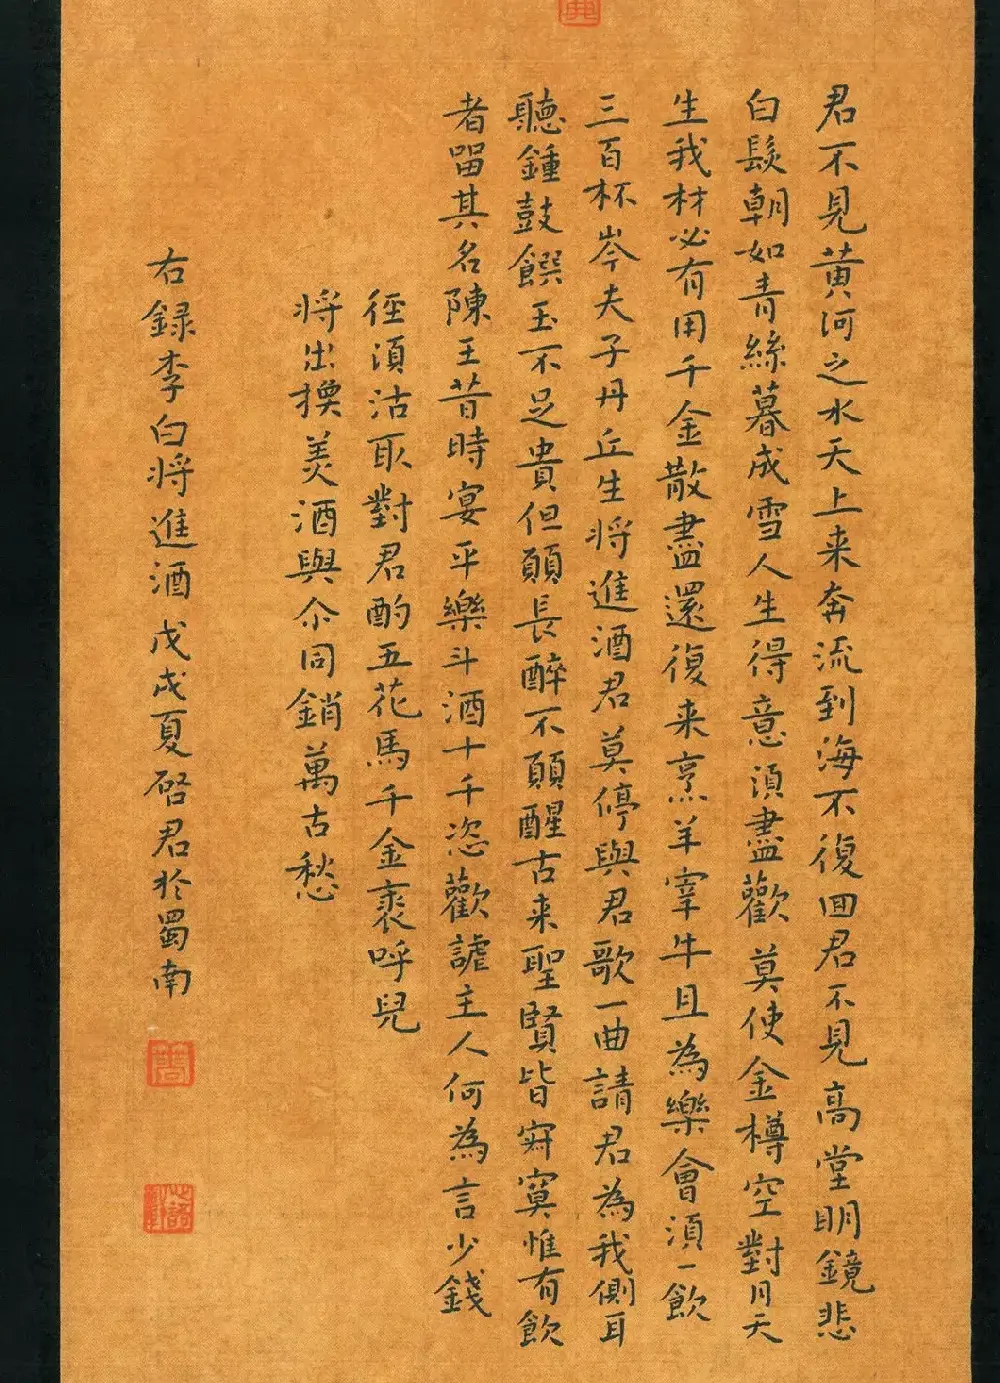 君不見黄河之水天上来奔流到海不復回君不見高堂明鏡悲
白髮朝如青絲暮成雪人生得意須盡歡莫使金樽空對月天
生我材必有用千金散盡還復来烹羊宰牛且為樂會須一飲
三百杯岑夫子丹丘生将進酒君莫停與君歌一曲請君為我側耳
聽鍾鼓饌玉不足貴但願長醉不願醒古来聖賢皆寂寞惟有飲
者留其名陳王昔時宴平樂斗酒十千恣歡謔主人何為言少錢
徑須沽取對君酌五花馬千金裘呼兒
将出換美酒與尒同銷萬古愁
右録李白将進酒戊戌夏啓君於蜀南